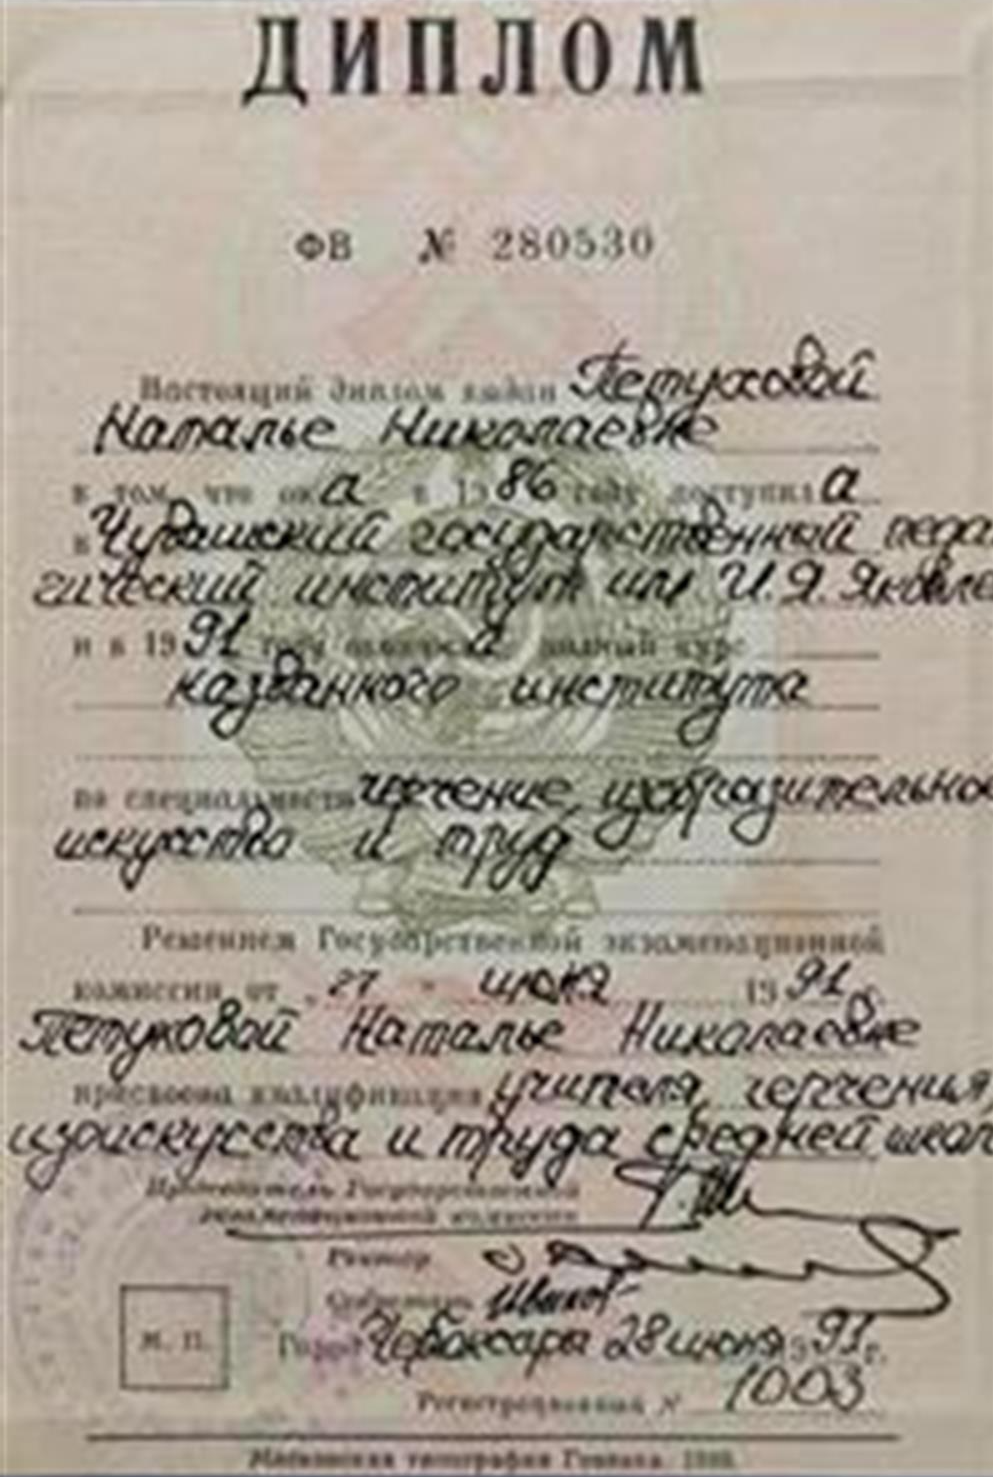 ДИПЛОМ
ФВ № 280530
Настоящий диплом выдан Петуховой
Наталье Николаевне
в том, что она в 1986 году поступила
в Чувашский государственный педаг
гический институт им И.Я. Яковле
и в 1991 году окончила полный курс
названного института
по специальности черчение, изобразительное
искусство и труд
Решением Государственной экзаменационной
комиссии от „27 “ июня 1991 г.
Петуховой Наталье Николаевне
присвоена квалификация учителя, черчения,
изоискусства и труда средней школ
Председатель Государственной
экзаменационной комиссии
Ректор
Секретарь
М. П.
Город Чебоксары 28 июня 1991 г.
Регистрационный № 1003
Московская типография Гознака.